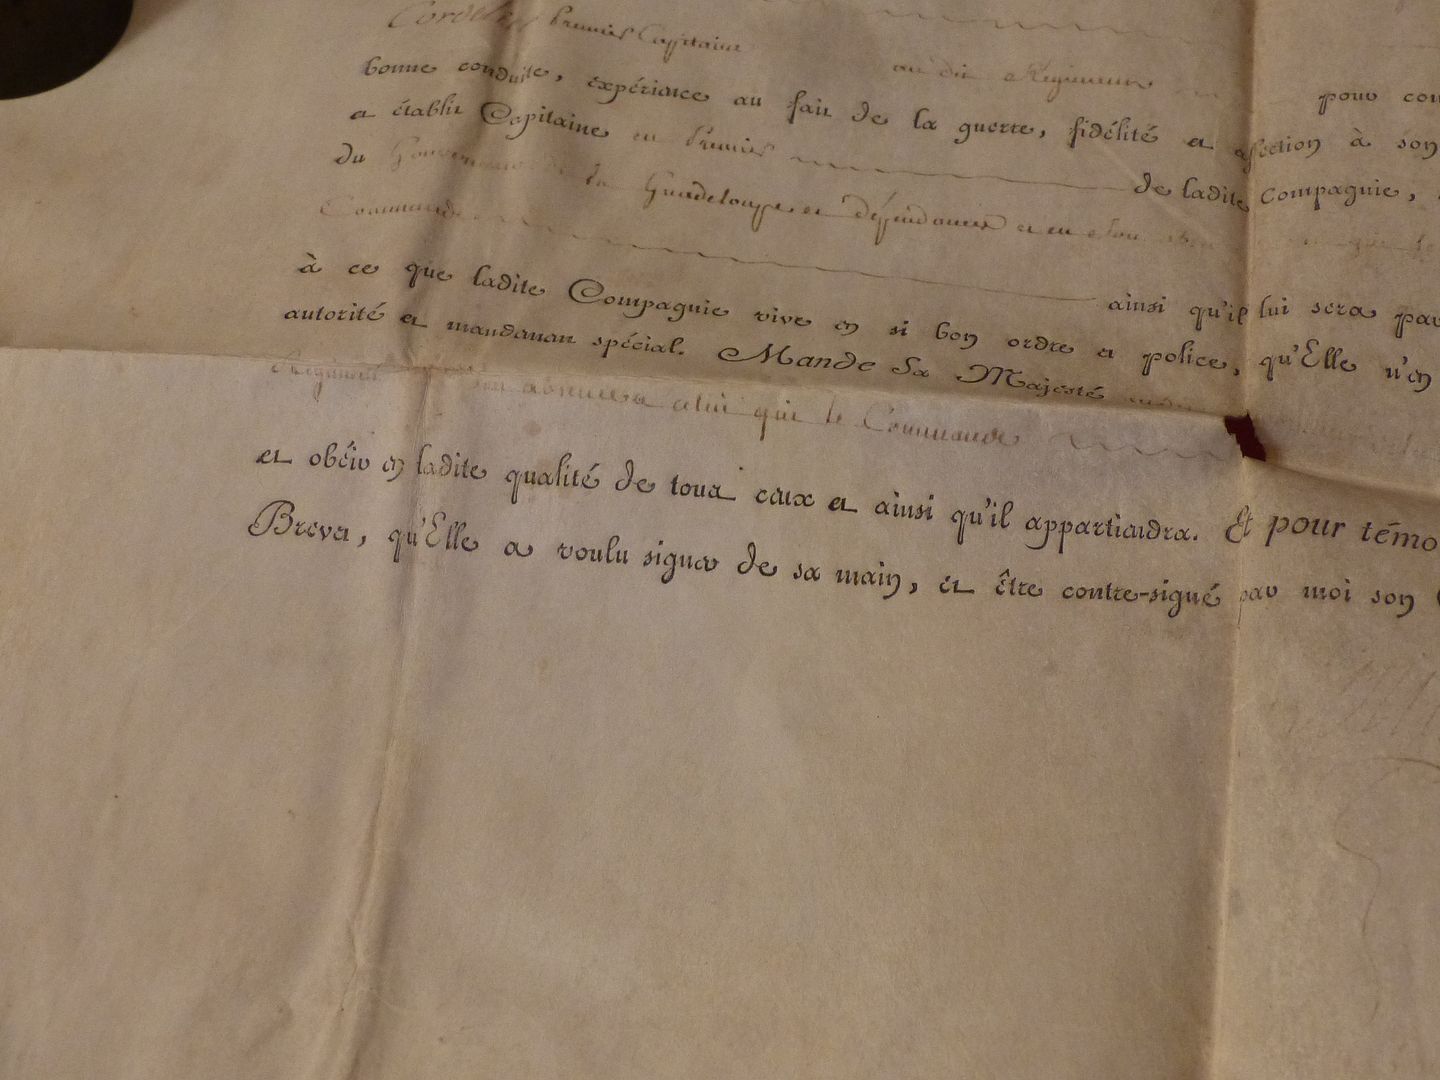 Cordelier premier Capitaine au dit Régiment pour
bonne conduite, expérience au fait de la guerre, fidélité et affection à son
et établir Capitaine en Premier de ladite Compagnie,
du Gouverneur de la Guadeloupe et dépendances et en son
Commande ainsi qu'il lui sera par
à ce que ladite Compagnie vive en si bon ordre et police, qu'Elle n'en
autorité et mandement spécial. Mande Sa Majesté
Régiment son absence a celui qui le Commande
et obéir en ladite qualité de tous ceux et ainsi qu'il appartiendra. Et pour témo
Brevet, qu'Elle a voulu signer de sa main, et être contre-signé par moi son